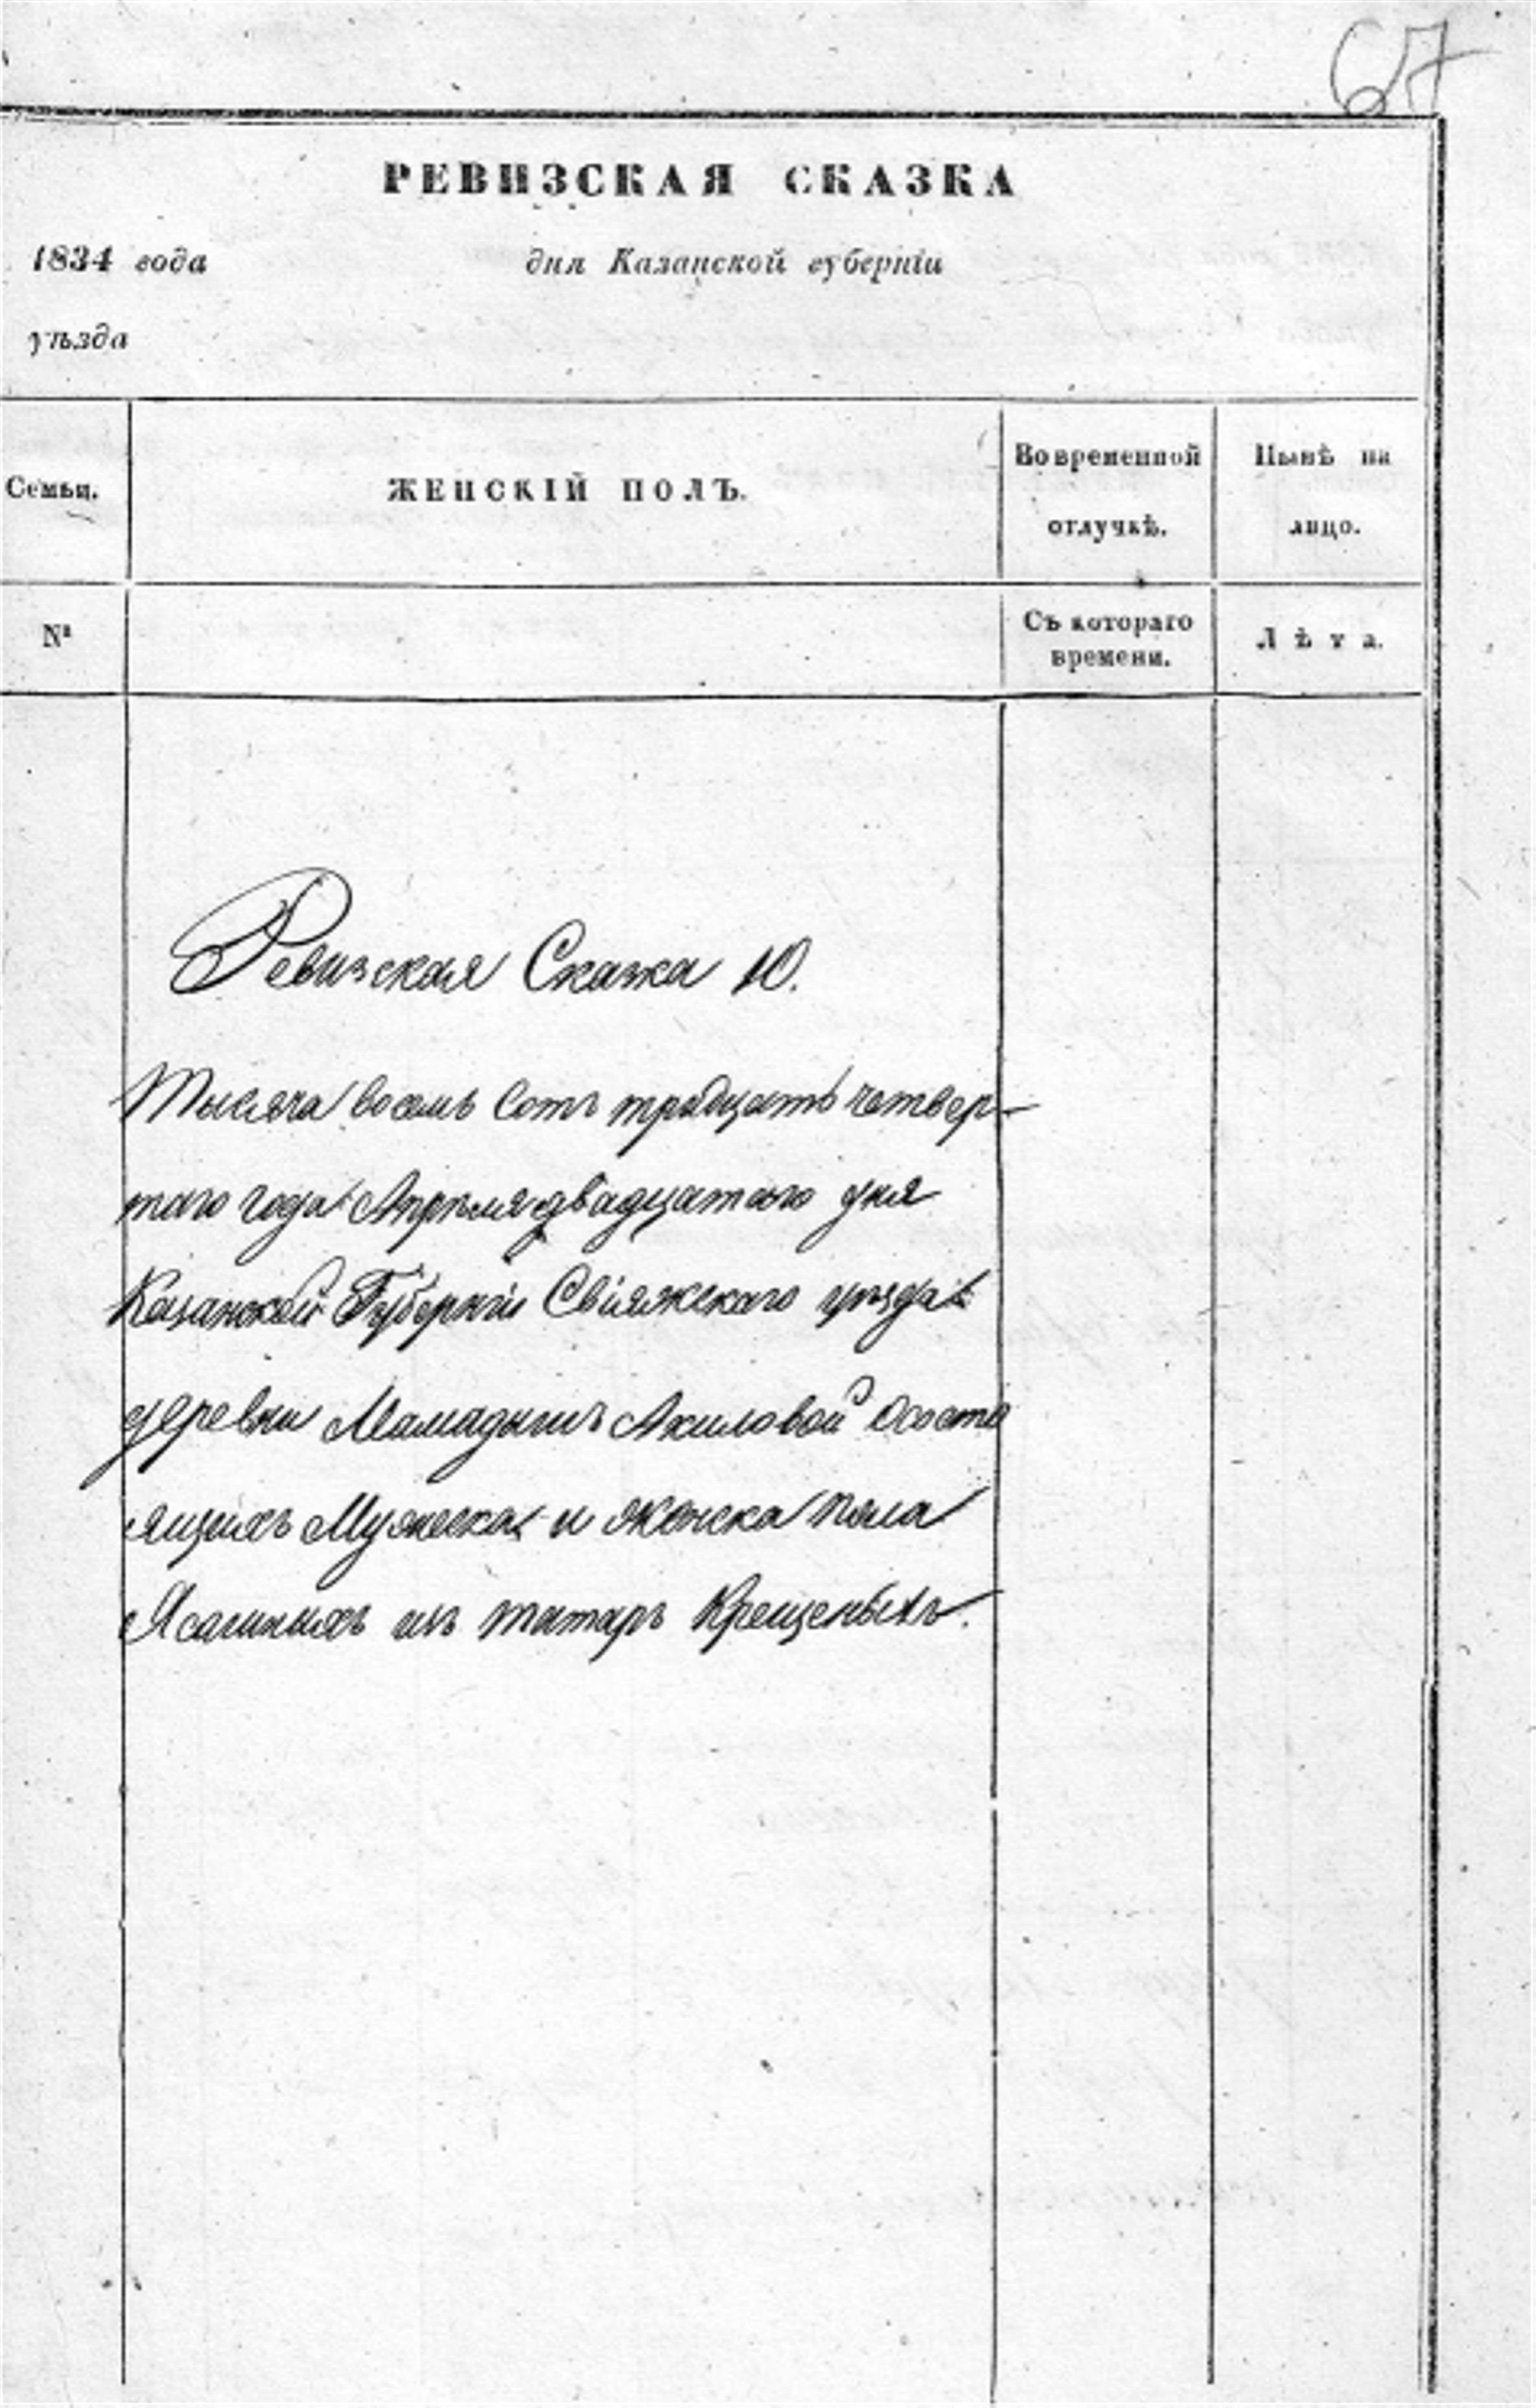 67
РЕВИЗСКАЯ СКАЗКА
1834 года дня Казанской губерніи
уѣзда
Семьи. ЖЕНСКІЙ ПОЛЪ. Во временной отлучкѣ. Нынѣ на лицо.
№ Съ котораго времени. Лѣта.
Ревизская Сказка 10.
Тысяча восемь сотъ тридцать четвер-
таго года Апрѣля двадцатаго дня
Казанской Губерніи Свіяжскаго уѣзда
деревни Мамадышъ Акиловой о состо
ящихъ Мужеска и женска пола
Ясашныхъ изъ татаръ Крещеныхъ.